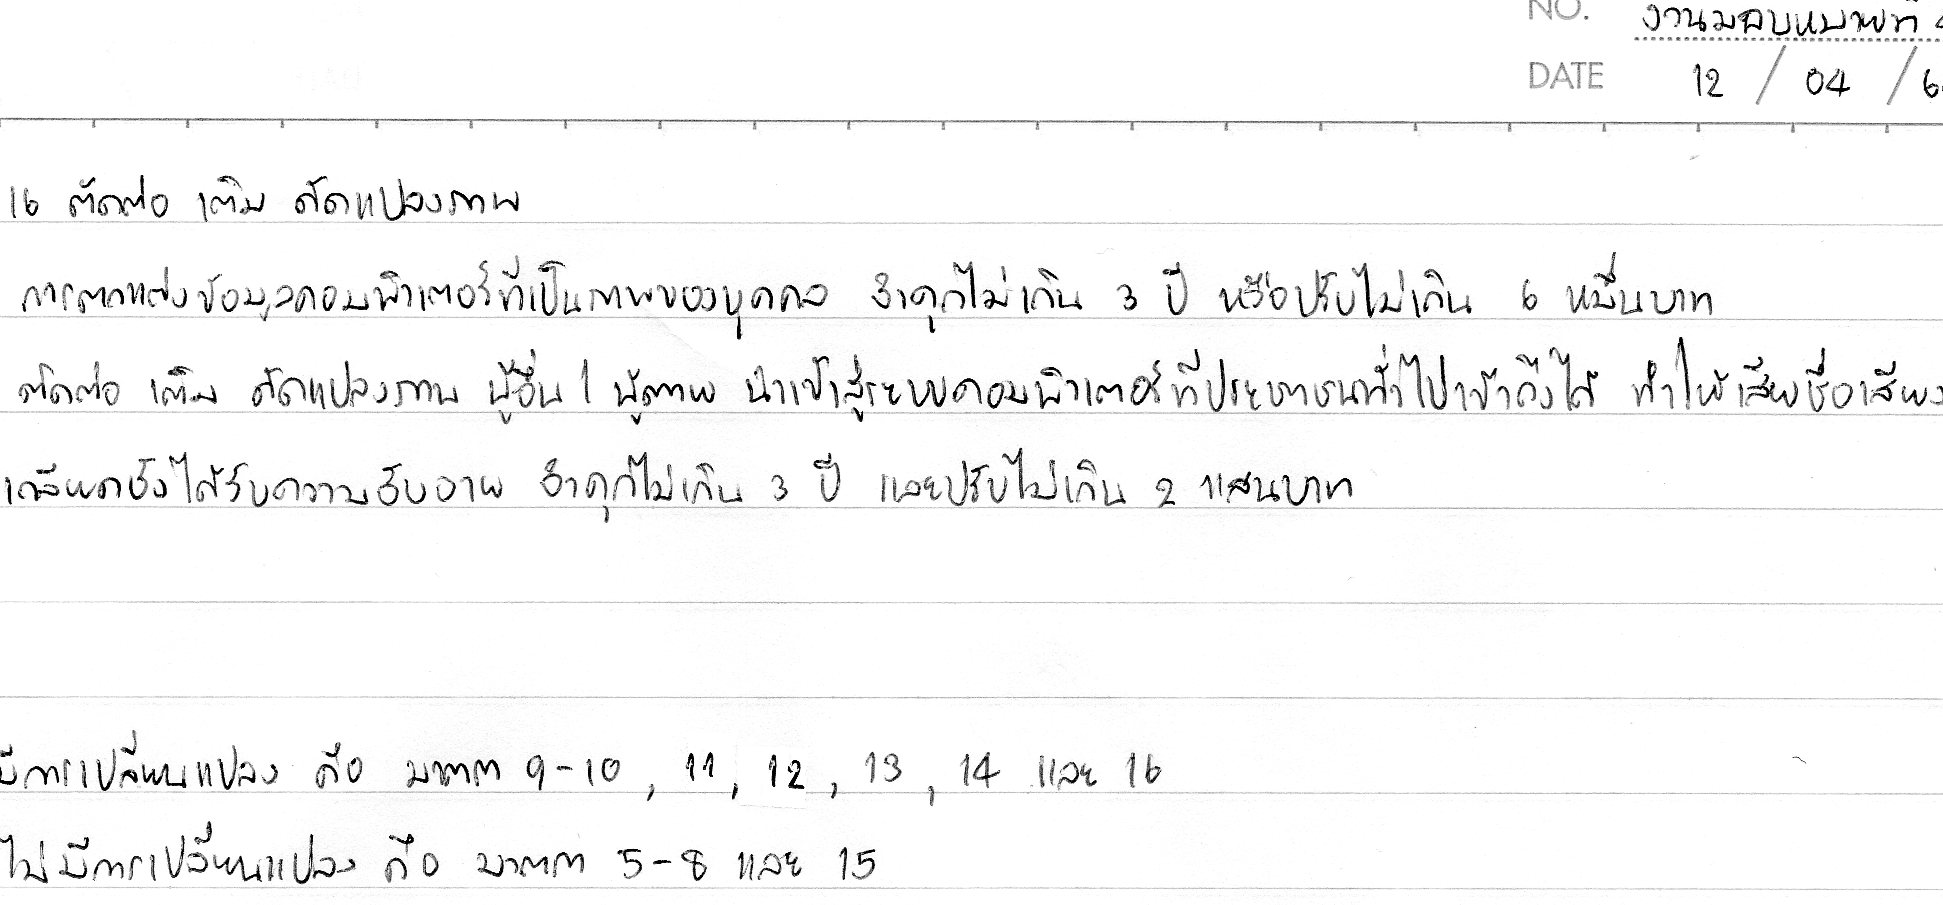 NO. งานมอบหมายที่
DATE 12 / 04 / 6
16 ตัดต่อ เติม ดัดแปลงภาพ
การตกแต่งข้อมูลคอมพิวเตอร์ที่เป็นภาพของบุคคล จำคุกไม่เกิน 3 ปี หรือปรับไม่เกิน 6 หมื่นบาท
ตัดต่อ เติม ดัดแปลงภาพ ผู้อื่น / ผู้ตาย นำเข้าสู่ระบบคอมพิวเตอร์ที่ประชาชนทั่วไปเข้าถึงได้ ทำให้เสียชื่อเสียง
เกลียดชัง ได้รับความอับอาย จำคุกไม่เกิน 3 ปี และปรับไม่เกิน 2 แสนบาท
มีการเปลี่ยนแปลง คือ มาตรา 9-10 , 11 , 12 , 13 , 14 และ 16
ไม่มีการเปลี่ยนแปลง คือ มาตรา 5-8 และ 15